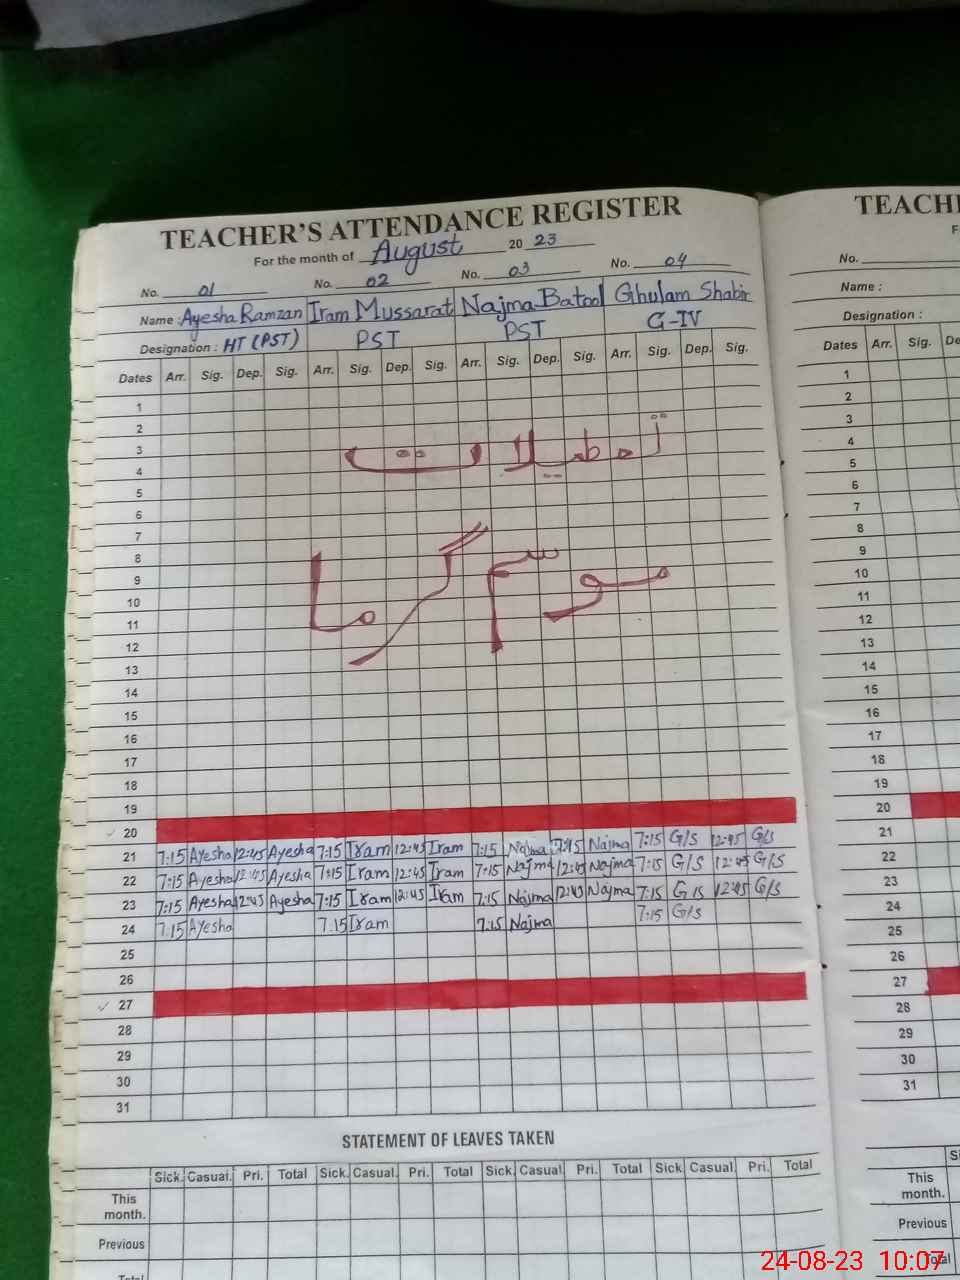 TEACHER'S ATTENDANCE REGISTER
For the month of August 20 23
No. 01 No. 02 No. 03 No. 04
Name : Ayesha Ramzan Iram Mussarat Najma Batool Ghulam Shabir
Designation : HT (PST) PST PST G-IV
Dates Arr. Sig. Dep. Sig. Arr. Sig. Dep. Sig. Arr. Sig. Dep. Sig. Arr. Sig. Dep. Sig.
1
2
3
تعطیلات
4
5
6
7
8
9
موسم گرما
10
11
12
13
14
15
16
17
18
19
20
21 7:15 Ayesha 12:45 Ayesha 7:15 Iram 12:45 Iram 7:15 Najma Najma 7:15 G/S 12:45 G/S
22 7:15 Ayesha 12:45 Ayesha 7:15 Iram 12:45 Iram 7:15 Najma 12:45 Najma 7:15 G/S 12:45 G/S
23 7:15 Ayesha 12:45 Ayesha 7:15 Iram 12:45 Iram 7:15 Najma 12:45 Najma 7:15 G/S 12:45 G/S
24 7:15 Ayesha 7:15 Iram 7:15 Najma 7:15 G/S
25
26
27
28
29
30
31
STATEMENT OF LEAVES TAKEN
Sick. Casual. Pri. Total Sick. Casual. Pri. Total Sick. Casual. Pri. Total Sick. Casual. Pri. Total
This
month.
Previous
Total
TEACH
F
No.
Name :
Designation :
Dates Arr. Sig. De
1
2
3
4
5
6
7
8
9
10
11
12
13
14
15
16
17
18
19
20
21
22
23
24
25
26
27
28
29
30
31
Si
This
month.
Previous
Total
24-08-23 10:07